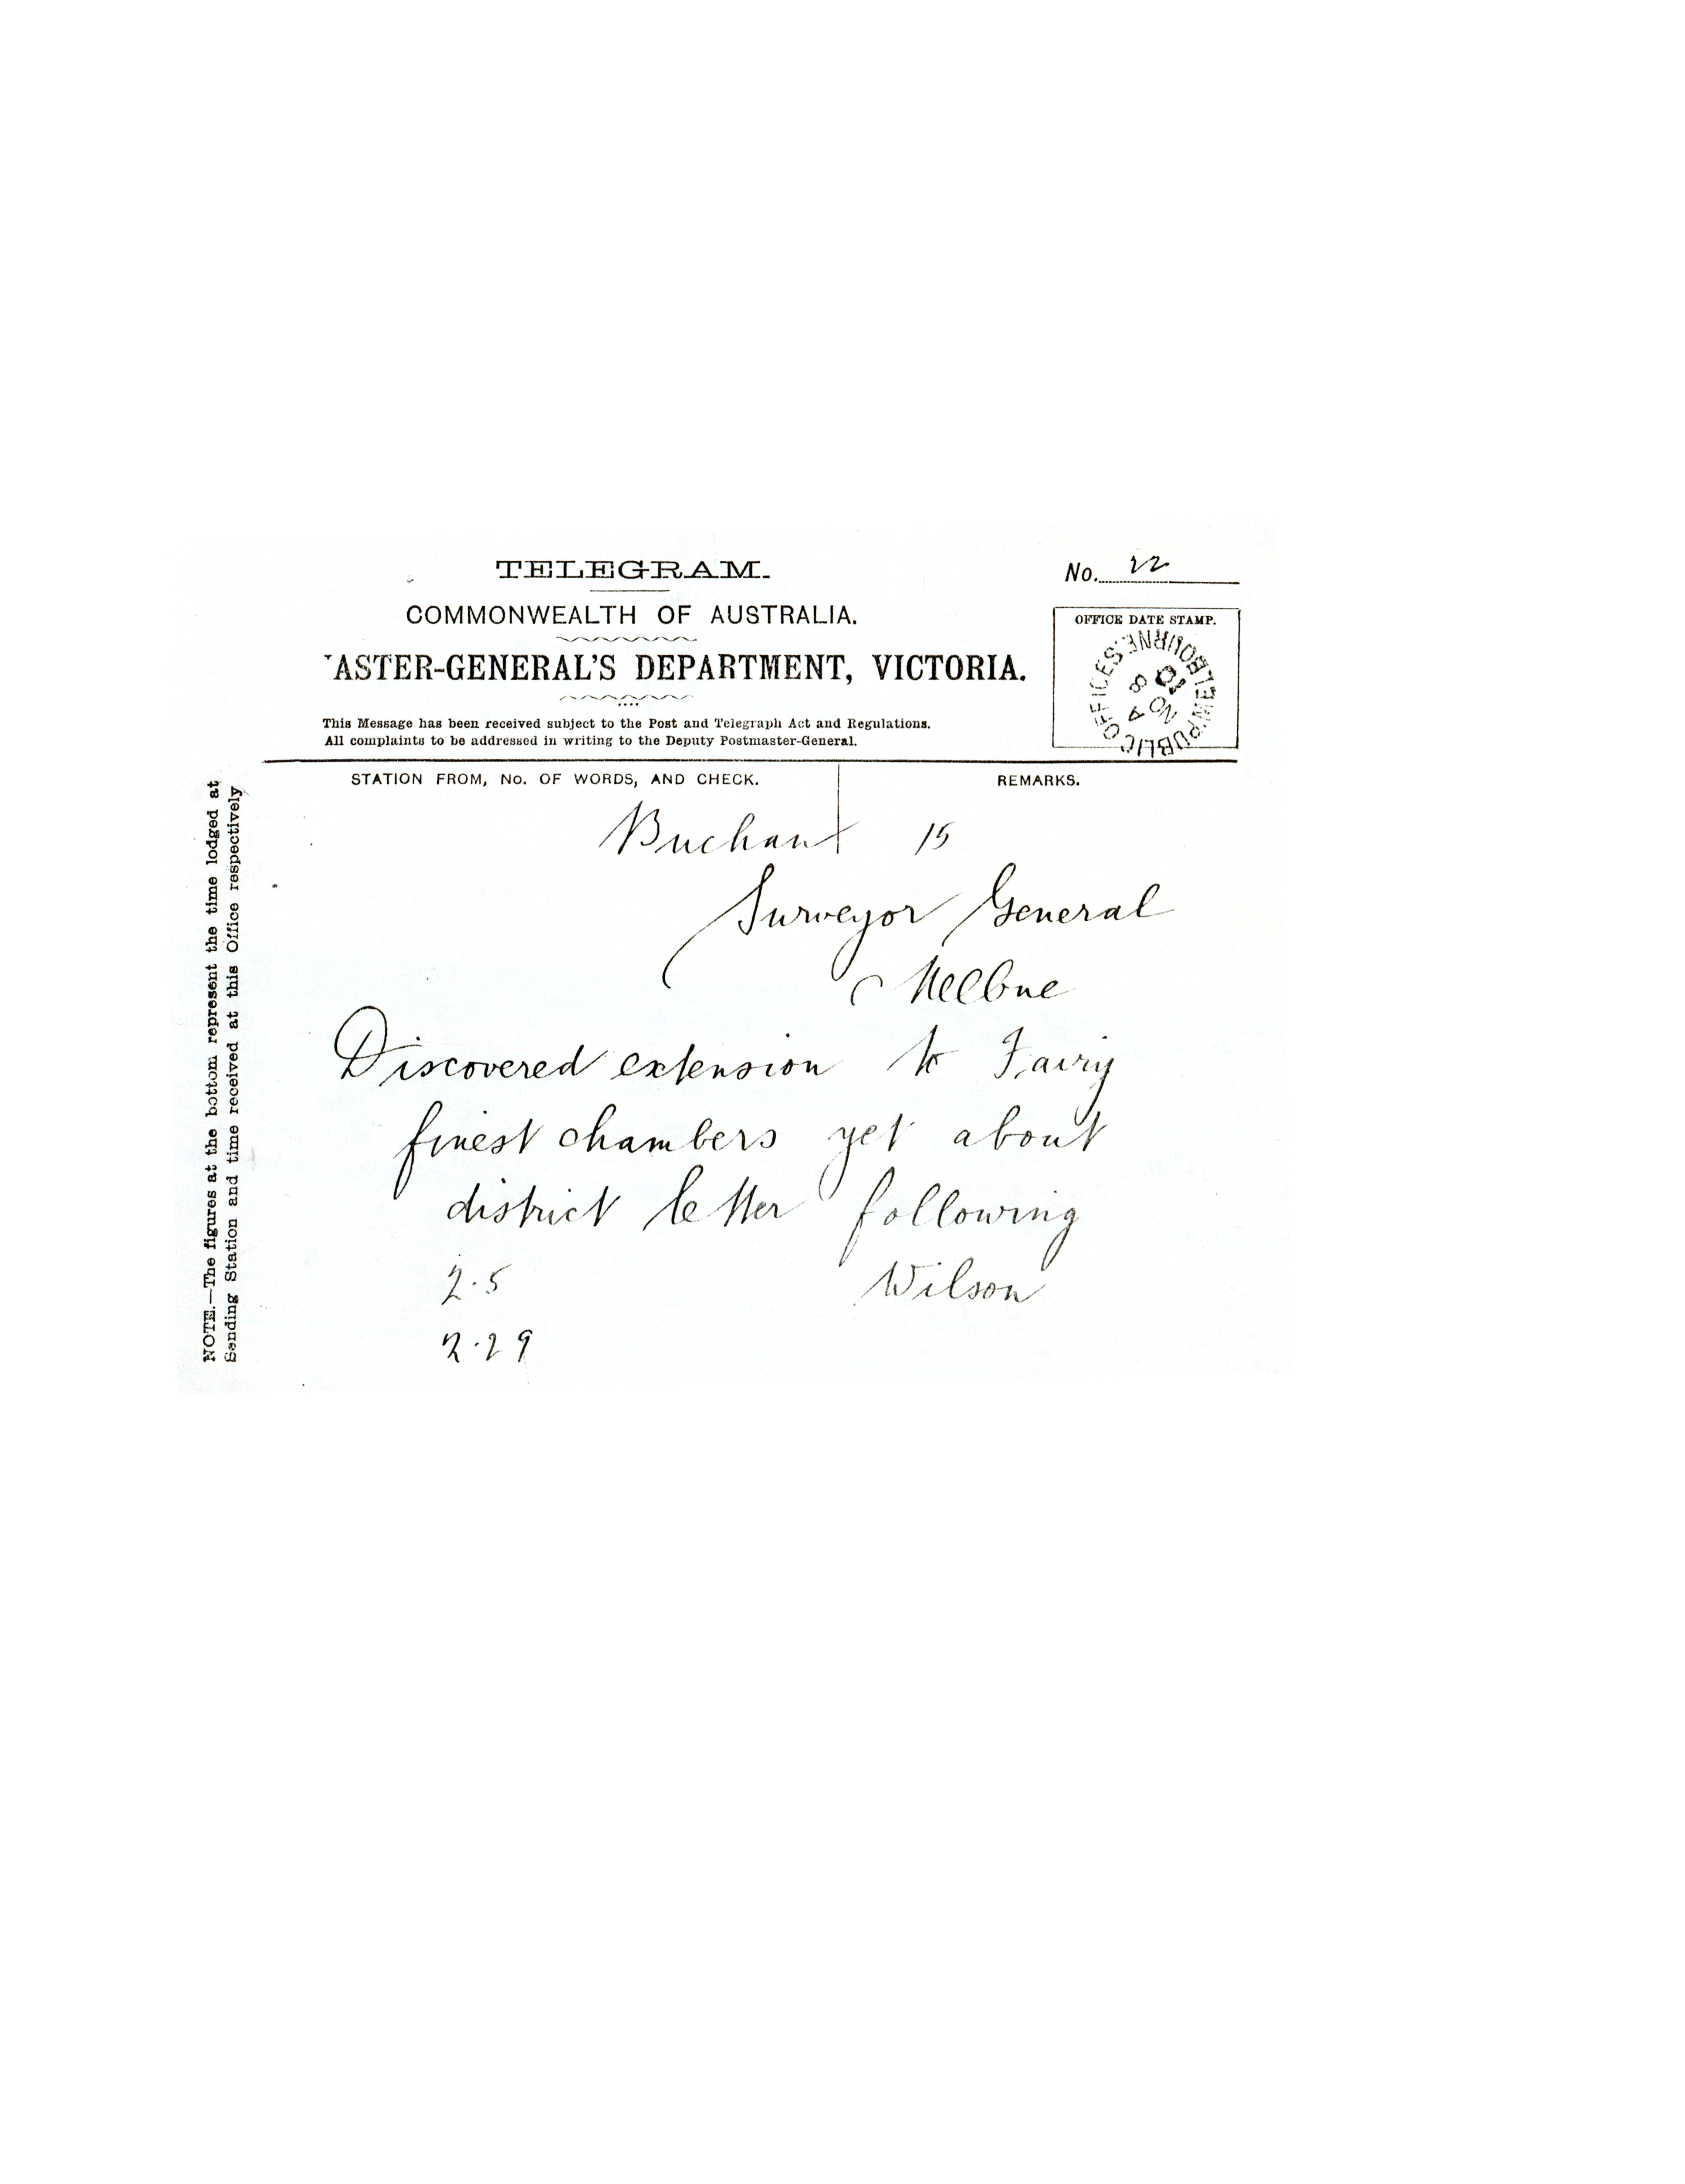 TELEGRAM.
No. 22
COMMONWEALTH OF AUSTRALIA.
ASTER-GENERAL'S DEPARTMENT, VICTORIA.
This Message has been received subject to the Post and Telegraph Act and Regulations.
All complaints to be addressed in writing to the Deputy Postmaster-General.
OFFICE DATE STAMP.
PUBLIC OFFICES. MELBOURNE
NO
8
STATION FROM, No. OF WORDS, AND CHECK.
REMARKS.
Buchan 15
Surveyor General
Melbne
Discovered extension to Fairy
finest chambers yet about
district letter following
2.5 Wilson
2.29
NOTE.—The figures at the bottom represent the time lodged at
Sending Station and time received at this Office respectively